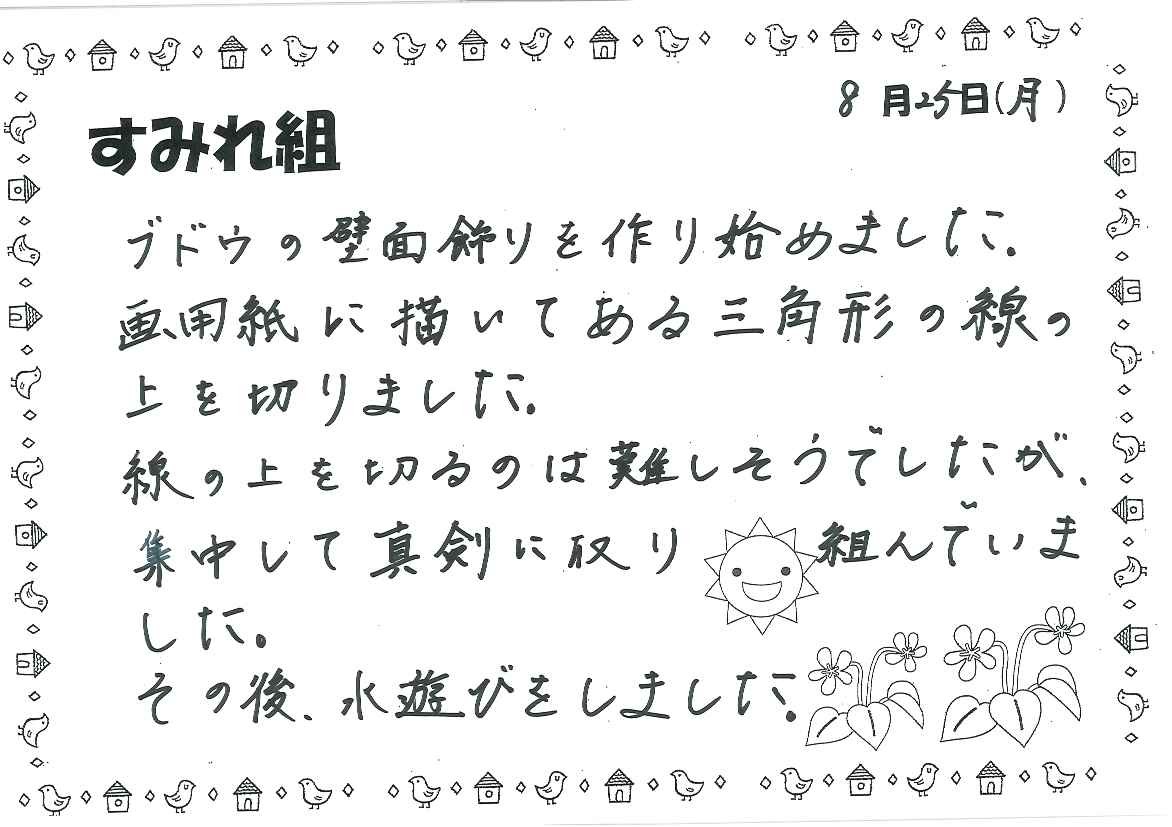 8月25日(月)
すみれ組
ブドウの壁面飾りを作り始めました。
画用紙に描いてある三角形の線の
上を切りました。
線の上を切るのは難しそうでしたが、
集中して真剣に取り組んでいま
した。
その後、水遊びをしました。